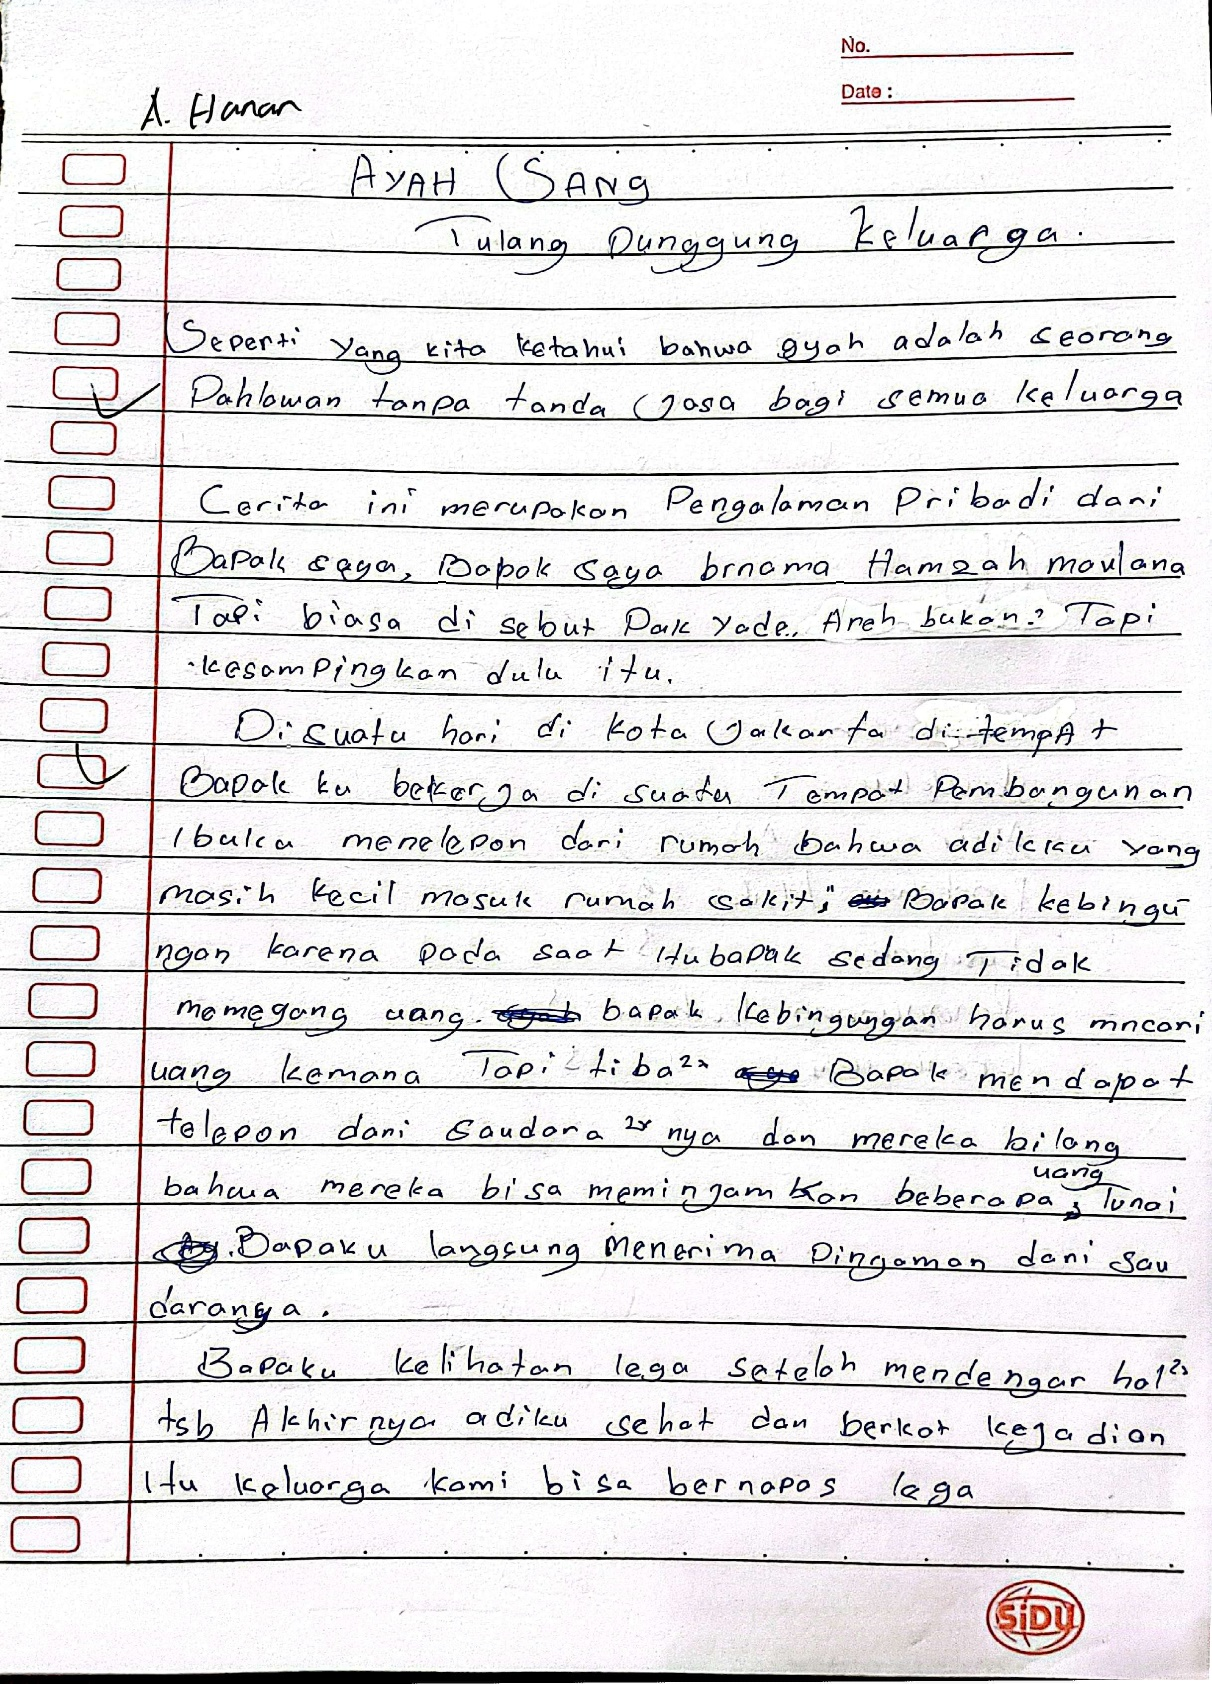 No.
Date :
A. Hanan
AYAH SANG
Tulang Punggung Keluarga.
Seperti yang kita ketahui bahwa ayah adalah seorang
Pahlawan tanpa tanda Jasa bagi semua keluarga
Cerita ini merupakan Pengalaman Pribadi dari
Bapak saya, Bapak saya brnama Hamzah maulana
Tapi biasa di sebut Pak Yade. Aneh bukan? Tapi
kesampingkan dulu itu.
Disuatu hari di kota Jakarta di tempAt
Bapak ku bekerja di suatu Tempat Pembangunan
Ibuku menelepon dari rumah bahwa adikku yang
masih kecil masuk rumah sakit, Bapak kebingu
ngan karena pada saat itu bapak sedang Tidak
memegang uang. bapak kebingungan harus mncari
uang kemana Tapi tiba2x Bapak mendapat
telepon dari saudara 2x nya dan mereka bilang
bahwa mereka bisa meminjamkan beberapa uang Tunai
. Bapaku langsung menerima Pinjaman dari sau
daranya.
Bapaku kelihatan lega setelah mendengar hal2x
tsb Akhirnya adiku sehat dan berkat kejadian
itu keluarga kami bisa bernapas lega
SiDU